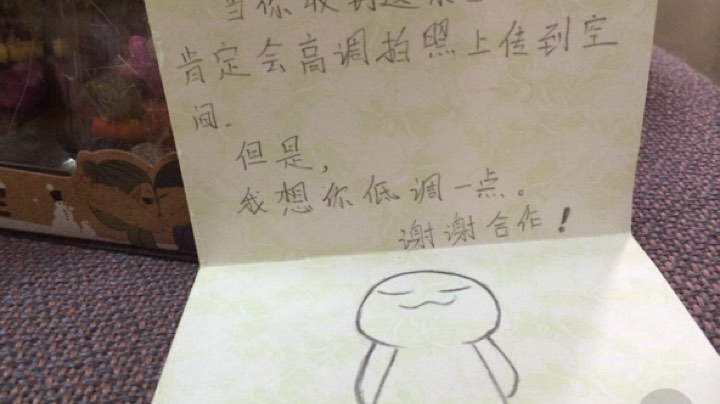 当你收到这
肯定会高调拍照上传到空
间.
但是,
我想你低调一点。
谢谢合作!